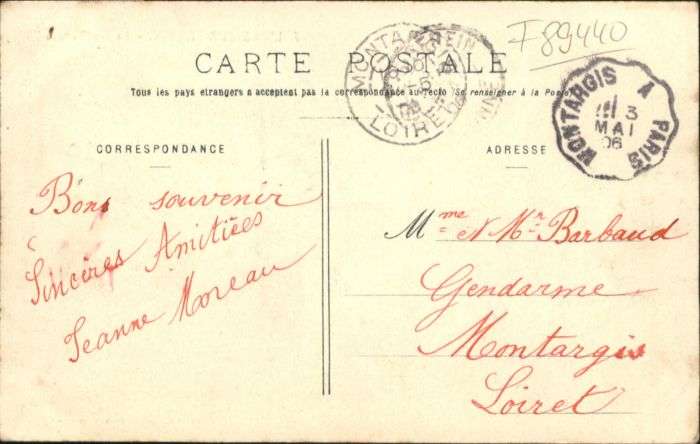 F89440
CARTE POSTALE
Tous les pays etrangers n acceptent pas la correspondance au recto (Se renseigner à la Poste)
MONTARGIS
LOIRET
MONTARGIS A PARIS
3
MAI
06
CORRESPONDANCE
ADRESSE
Bons souvenir
Sincères Amitiées
Jeanne Moreau
Mme et Mr Barbaud
Gendarme
Montargis
Loiret